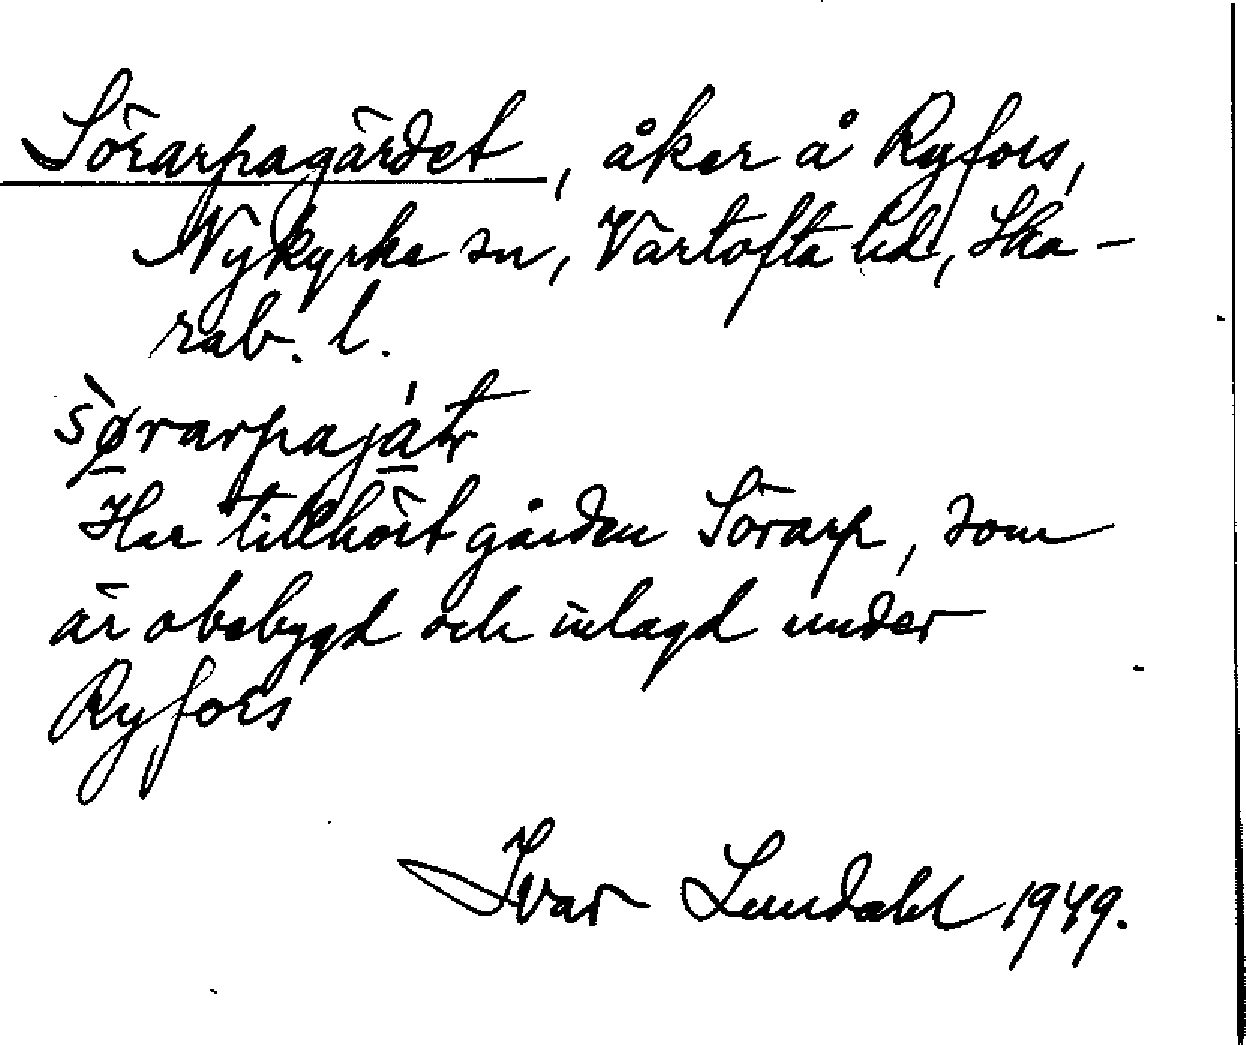 Sörarpagärdet, åker å Ryfors,
Nykyrke sn, Vartofta hd, Ska-
rab. l.
s̀ø̱rarpajá̱tr
Har tillhört gården Sörarp, som
är obebygd och inlagd under
Ryfors
Ivar Lundahl 1949.